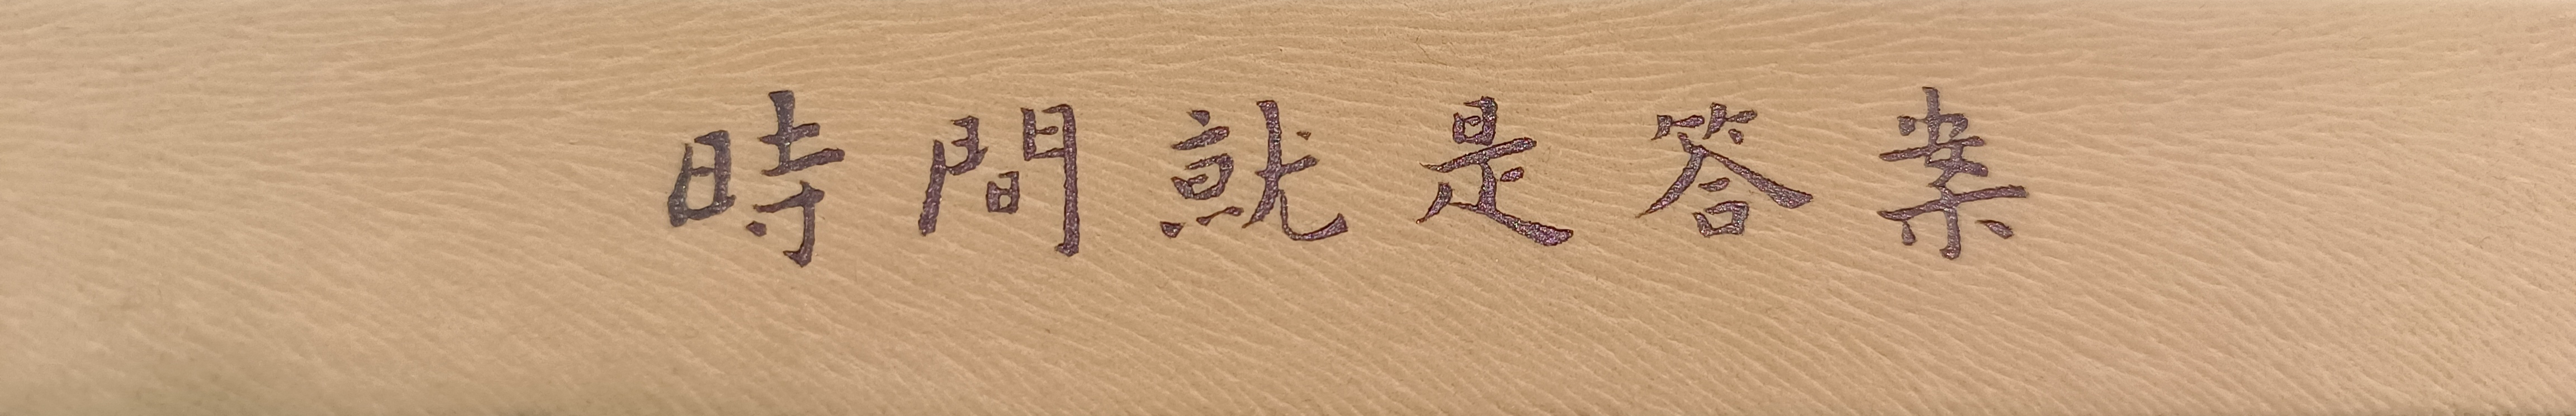 時間就是答案